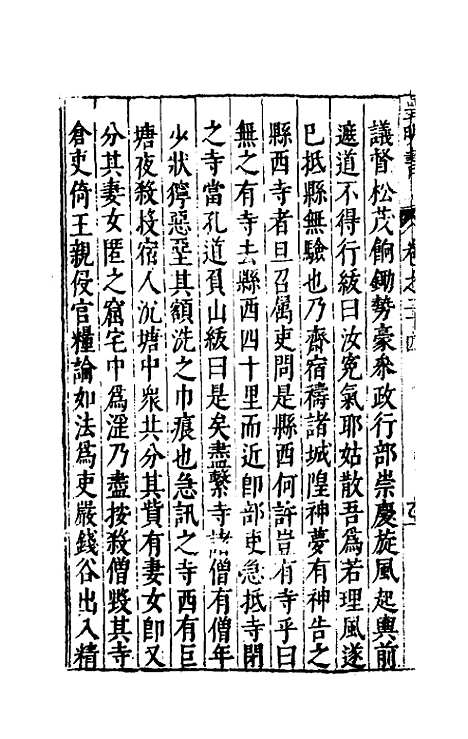 皇明書 卷之二十四
議督松茂餉鋤勢豪參政行部崇慶旋風起輿前
遮道不得行紱曰汝寃氣耶姑散吾為若理風遂
已抵縣無驗也乃齋宿禱諸城隍神夢有神告之
縣西寺者旦召属吏問是縣西何許豈有寺乎曰
無之有寺去縣西四十里而近卽部吏急抵寺閉
之寺當孔道負山紱曰是矣盡繫寺諸僧有僧年
少狀獰惡堊其額洗之巾痕也急訊之寺西有巨
塘夜殺投宿人沉塘中衆共分其貲有妻女卽又
分其妻女匿之窟宅中為淫乃盡按殺僧燬其寺
倉吏倚王親侵官糧論如法為吏嚴錢谷出入精